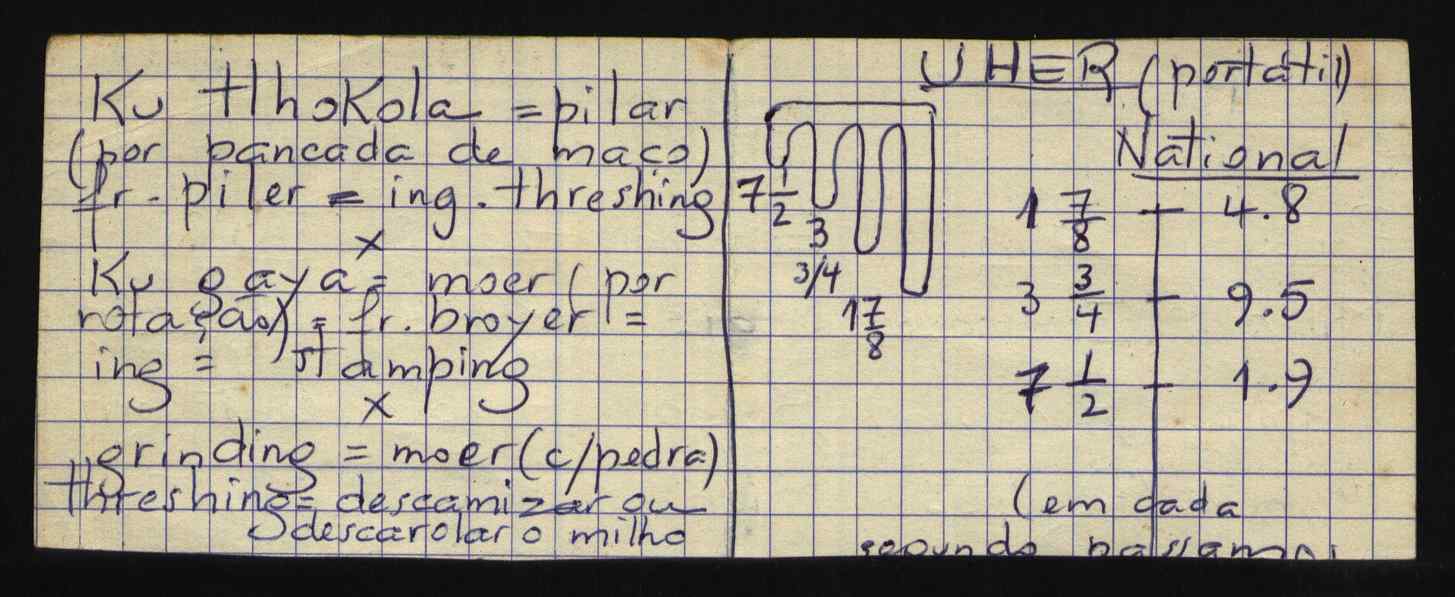 Ku tlhoKola = pilar
(por pancada de maço)
fr. piler = ing. threshing
x
Ku gaya = moer (por
rotação) = fr. broyer =
ing = stamping
x
grinding = moer (c/pedra)
threshing = descamizar ou
descarolar o milho
UHER (portátil)
National
7 1/2
3
3/4
1 7/8
1 7/8 - 4.8
3 3/4 - 9.5
7 1/2 - 1.9
(em cada
segundo passam